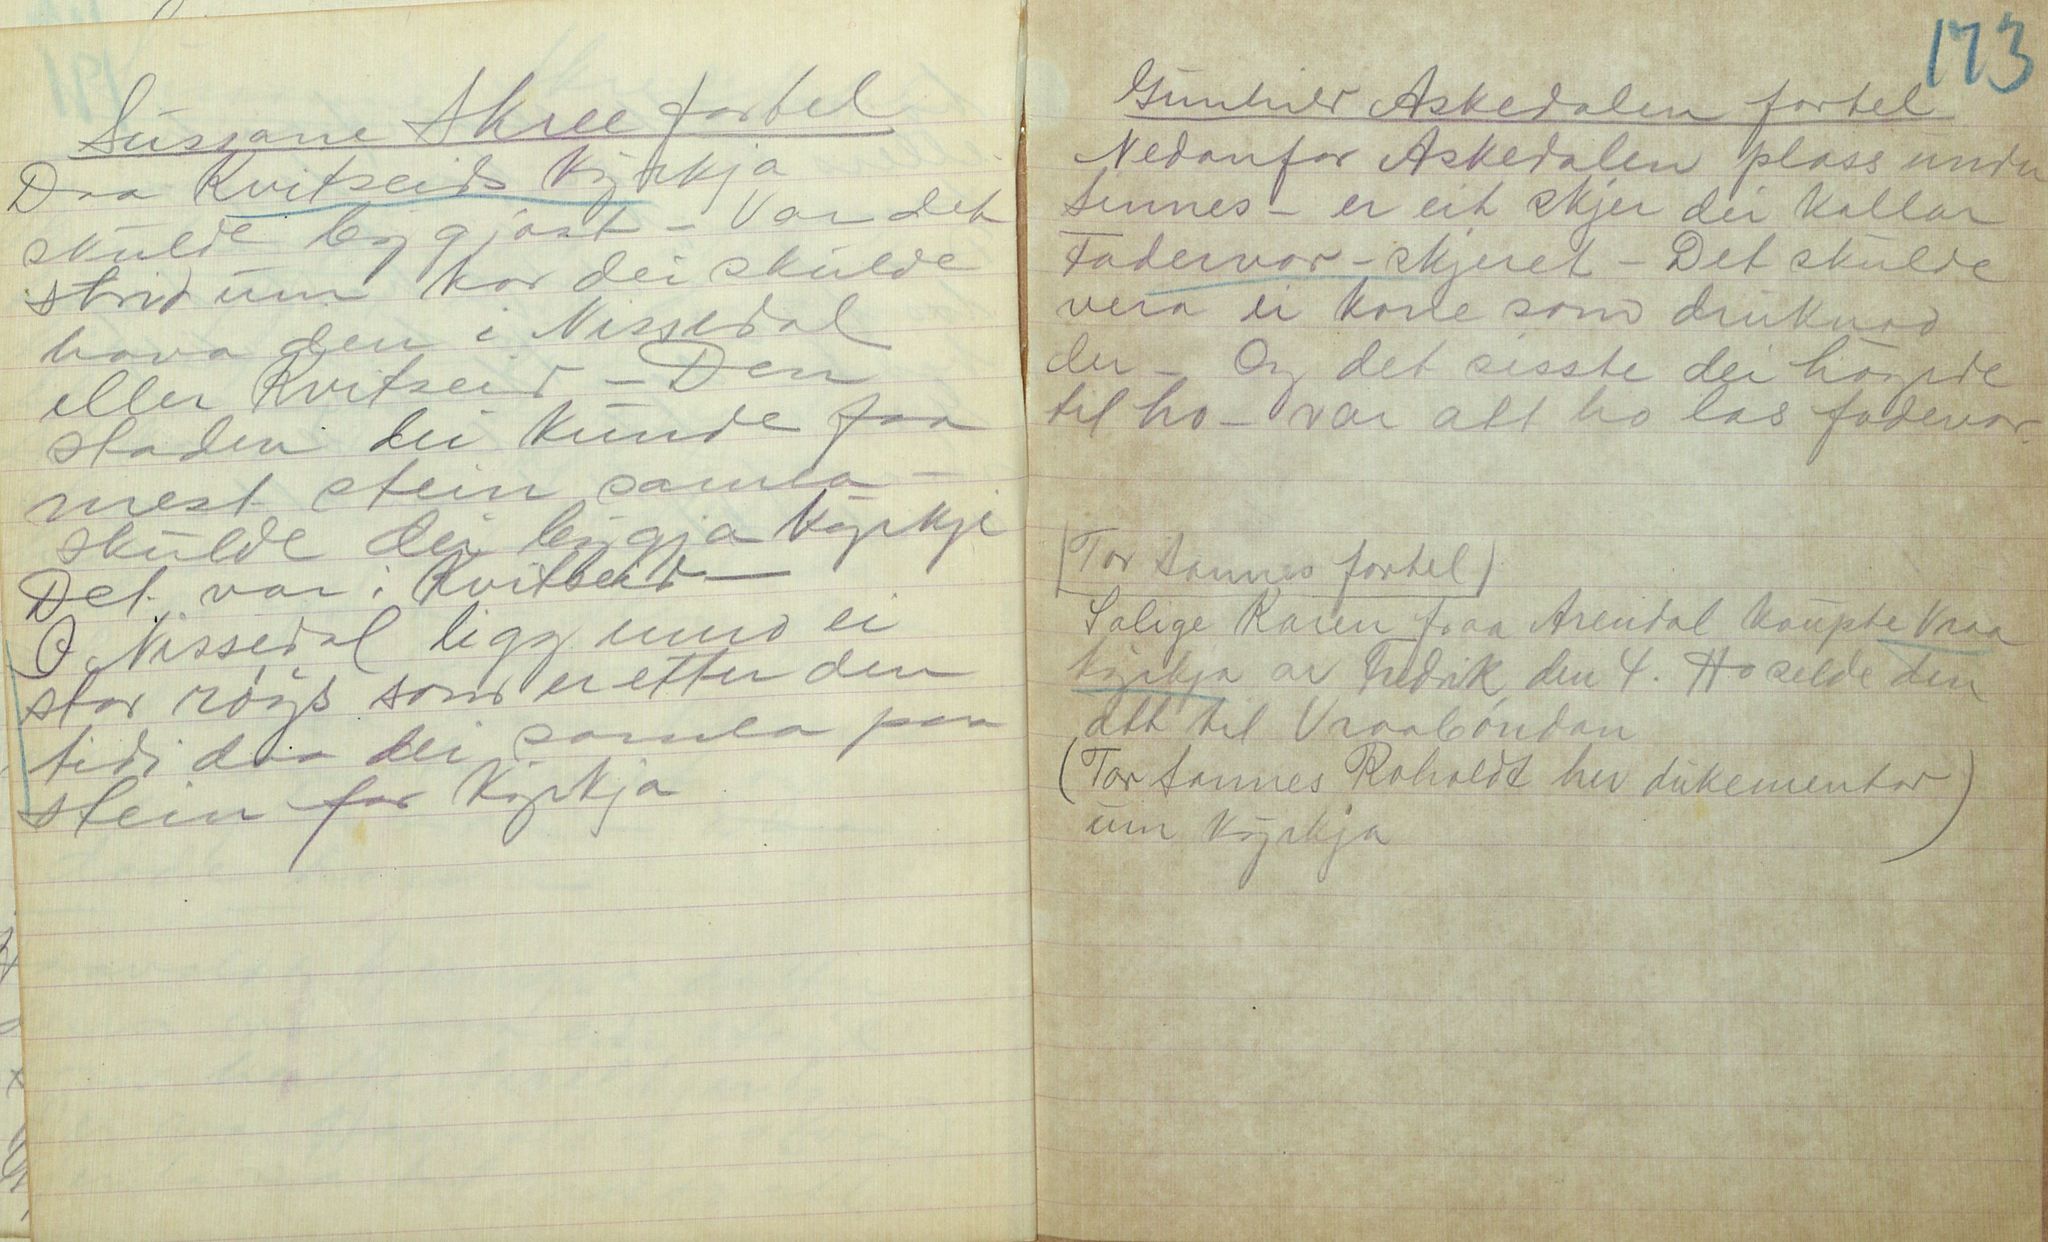 Sussane Skree fortel
Daa Kvitseids kyrkja
skulde byggjast - Var det
strid um kor dei skulde
hava den i Nissedal
eller Kvitseid - Den
staden dei kunde faa
mest stein samla -
skulde dei byggja kyrkje
Det var i Kvitseid -
I Nissedal ligg unno ei
stor röys som er etter den
tidi daa dei samla paa
stein for kyrkja
173
Gunhild Askedalen fortel
Nedanfor Askedalen plass under
Sunnes - er eit skjer dei kallar
Fadervor-skjeret - Det skulde
vera ei kone som druknad
der - Og det sisste dei höyrde
til ho - var att ho las fadervor.
(Tor Sannes fortel)
Salige Karen fraa Arendal kaupte Vraa
kyrkja av Fredrik den 4. Ho selde den
att til Vraaböndan
(Tor Sannes Roholdt hev dukementar
um kyrkja)